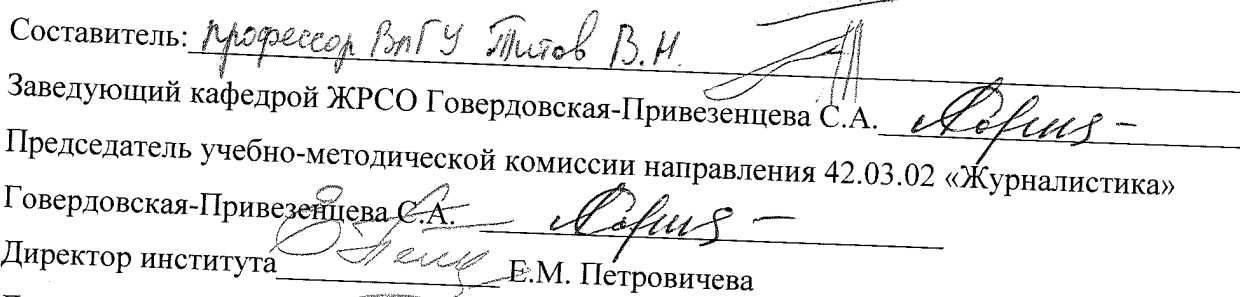 Составитель: профессор ВлГУ Титов В.Н.
Заведующий кафедрой ЖРСО Говердовская-Привезенцева С.А.
Председатель учебно-методической комиссии направления 42.03.02 «Журналистика»
Говердовская-Привезенцева С.А.
Директор института Е.М. Петровичева